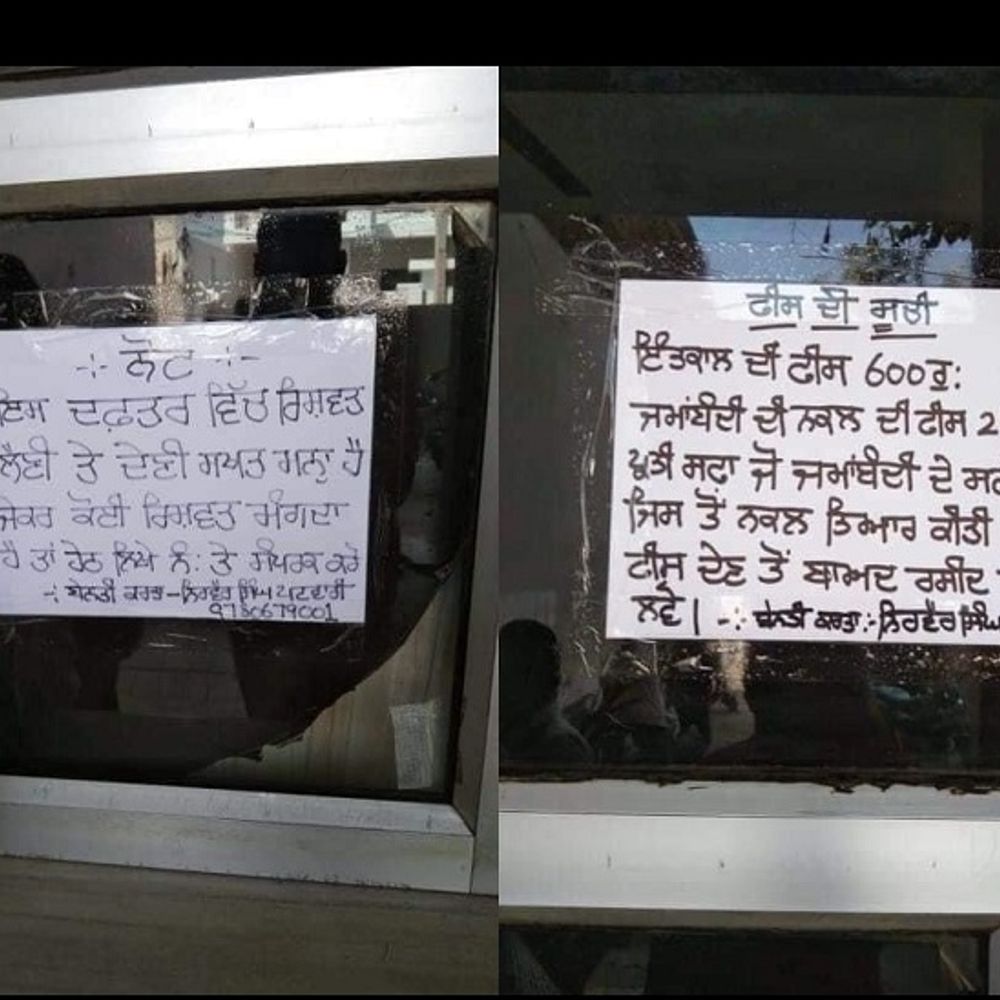 -:- ਨੋਟ -:-
ਇਸ ਦਫ਼ਤਰ ਵਿੱਚ ਰਿਸ਼ਵਤ
ਲੈਣੀ ਤੇ ਦੇਣੀ ਸਖਤ ਗਨਾਂ ਹੈ
ਜੇਕਰ ਕੋਈ ਰਿਸ਼ਵਤ ਮੰਗਦਾ
ਹੈ ਤਾਂ ਹੇਠ ਲਿਖੇ ਨੰ: ਤੇ ਸੰਪਰਕ ਕਰੋ
-: ਬੇਨਤੀ ਕਰਤਾ-ਨਿਰਵੈਰ ਸਿੰਘ ਪਟਵਾਰੀ
9780679001
ਫੀਸ ਦੀ ਸੂਚੀ
ਇੰਤਕਾਲ ਦੀ ਫੀਸ 600 ਰੁ:
ਜਮਾਂਬੰਦੀ ਦੀ ਨਕਲ ਦੀ ਫੀਸ 2
ਪ੍ਰਤੀ ਸਫਾ ਜੋ ਜਮਾਂਬੰਦੀ ਦੇ
ਜਿਸ ਤੋਂ ਨਕਲ ਤਿਆਰ ਕੀਤੀ
ਫੀਸ ਦੇਣ ਤੋਂ ਬਾਅਦ ਰਸੀਦ
ਲਵੋ | -:- ਬੇਨਤੀ ਕਰਤਾ:-ਨਿਰਵੈਰ ਸਿੰਘ